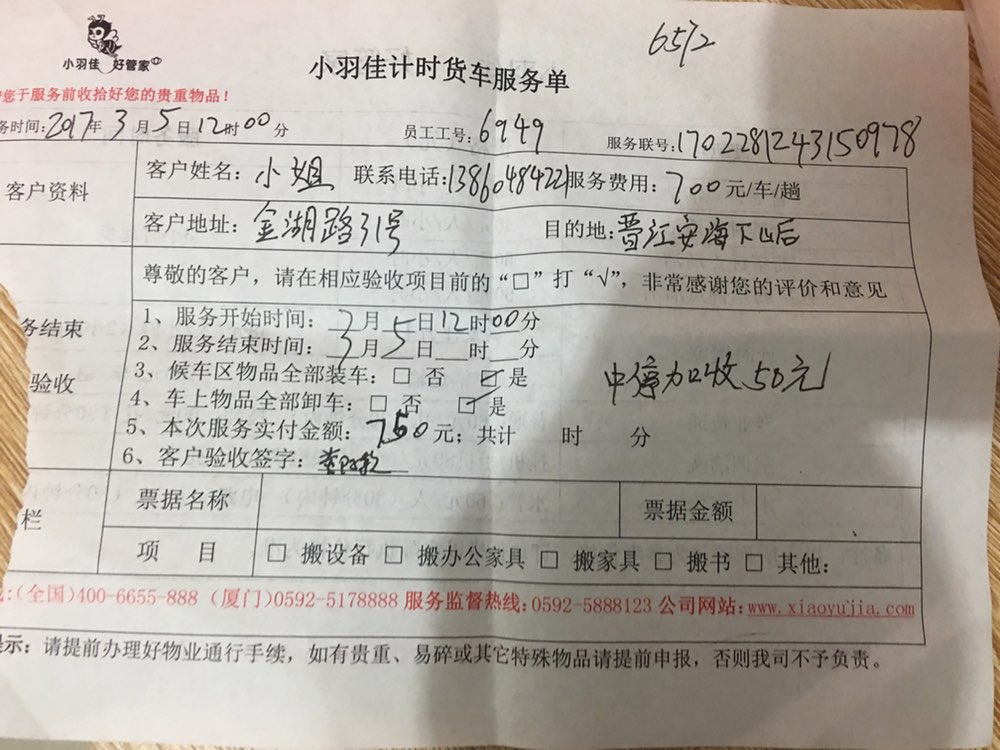 6572
小羽佳 好管家
小羽佳计时货车服务单
您于服务前收拾好您的贵重物品!
务时间:2017年3月5日12时00分 员工工号:6949 服务联号:1702281243150978
客户资料 客户姓名:小姐 联系电话:13860484221服务费用:700元/车/趟
客户地址:金湖路31号 目的地:晋江安海下山后
尊敬的客户,请在相应验收项目前的“□”打“√”,非常感谢您的评价和意见
务结束
验收
1、服务开始时间:3月5日12时00分
2、服务结束时间:3月5日__时__分
3、候车区物品全部装车:□ 否 ☑是
4、车上物品全部卸车:□ 否 ☑是
中停加收50元
5、本次服务实付金额:750元;共计 时 分
6、客户验收签字:
栏 票据名称 票据金额
项 目 □ 搬设备 □ 搬办公家具 □ 搬家具 □ 搬书 □ 其他:
:(全国)400-6655-888 (厦门)0592-5178888 服务监督热线:0592-5888123 公司网站:www.xiaoyujia.com
示:请提前办理好物业通行手续,如有贵重、易碎或其它特殊物品请提前申报,否则我司不予负责。